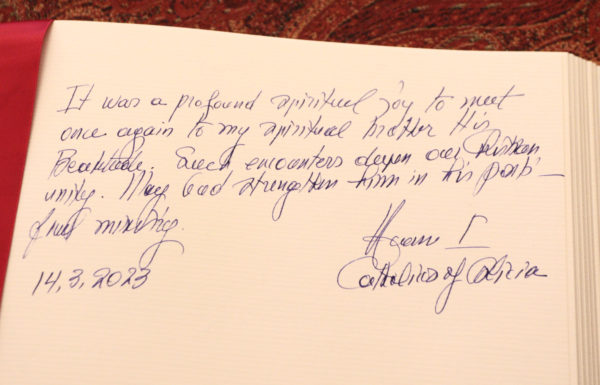 It was a profound spiritual joy to meet
once again to my spiritual brother His
Beatitude. Such encounters deepen our Christian
unity. May God strengthen him in his
ministry.
Aram I
14.3.2023
Catholicos of Cilicia